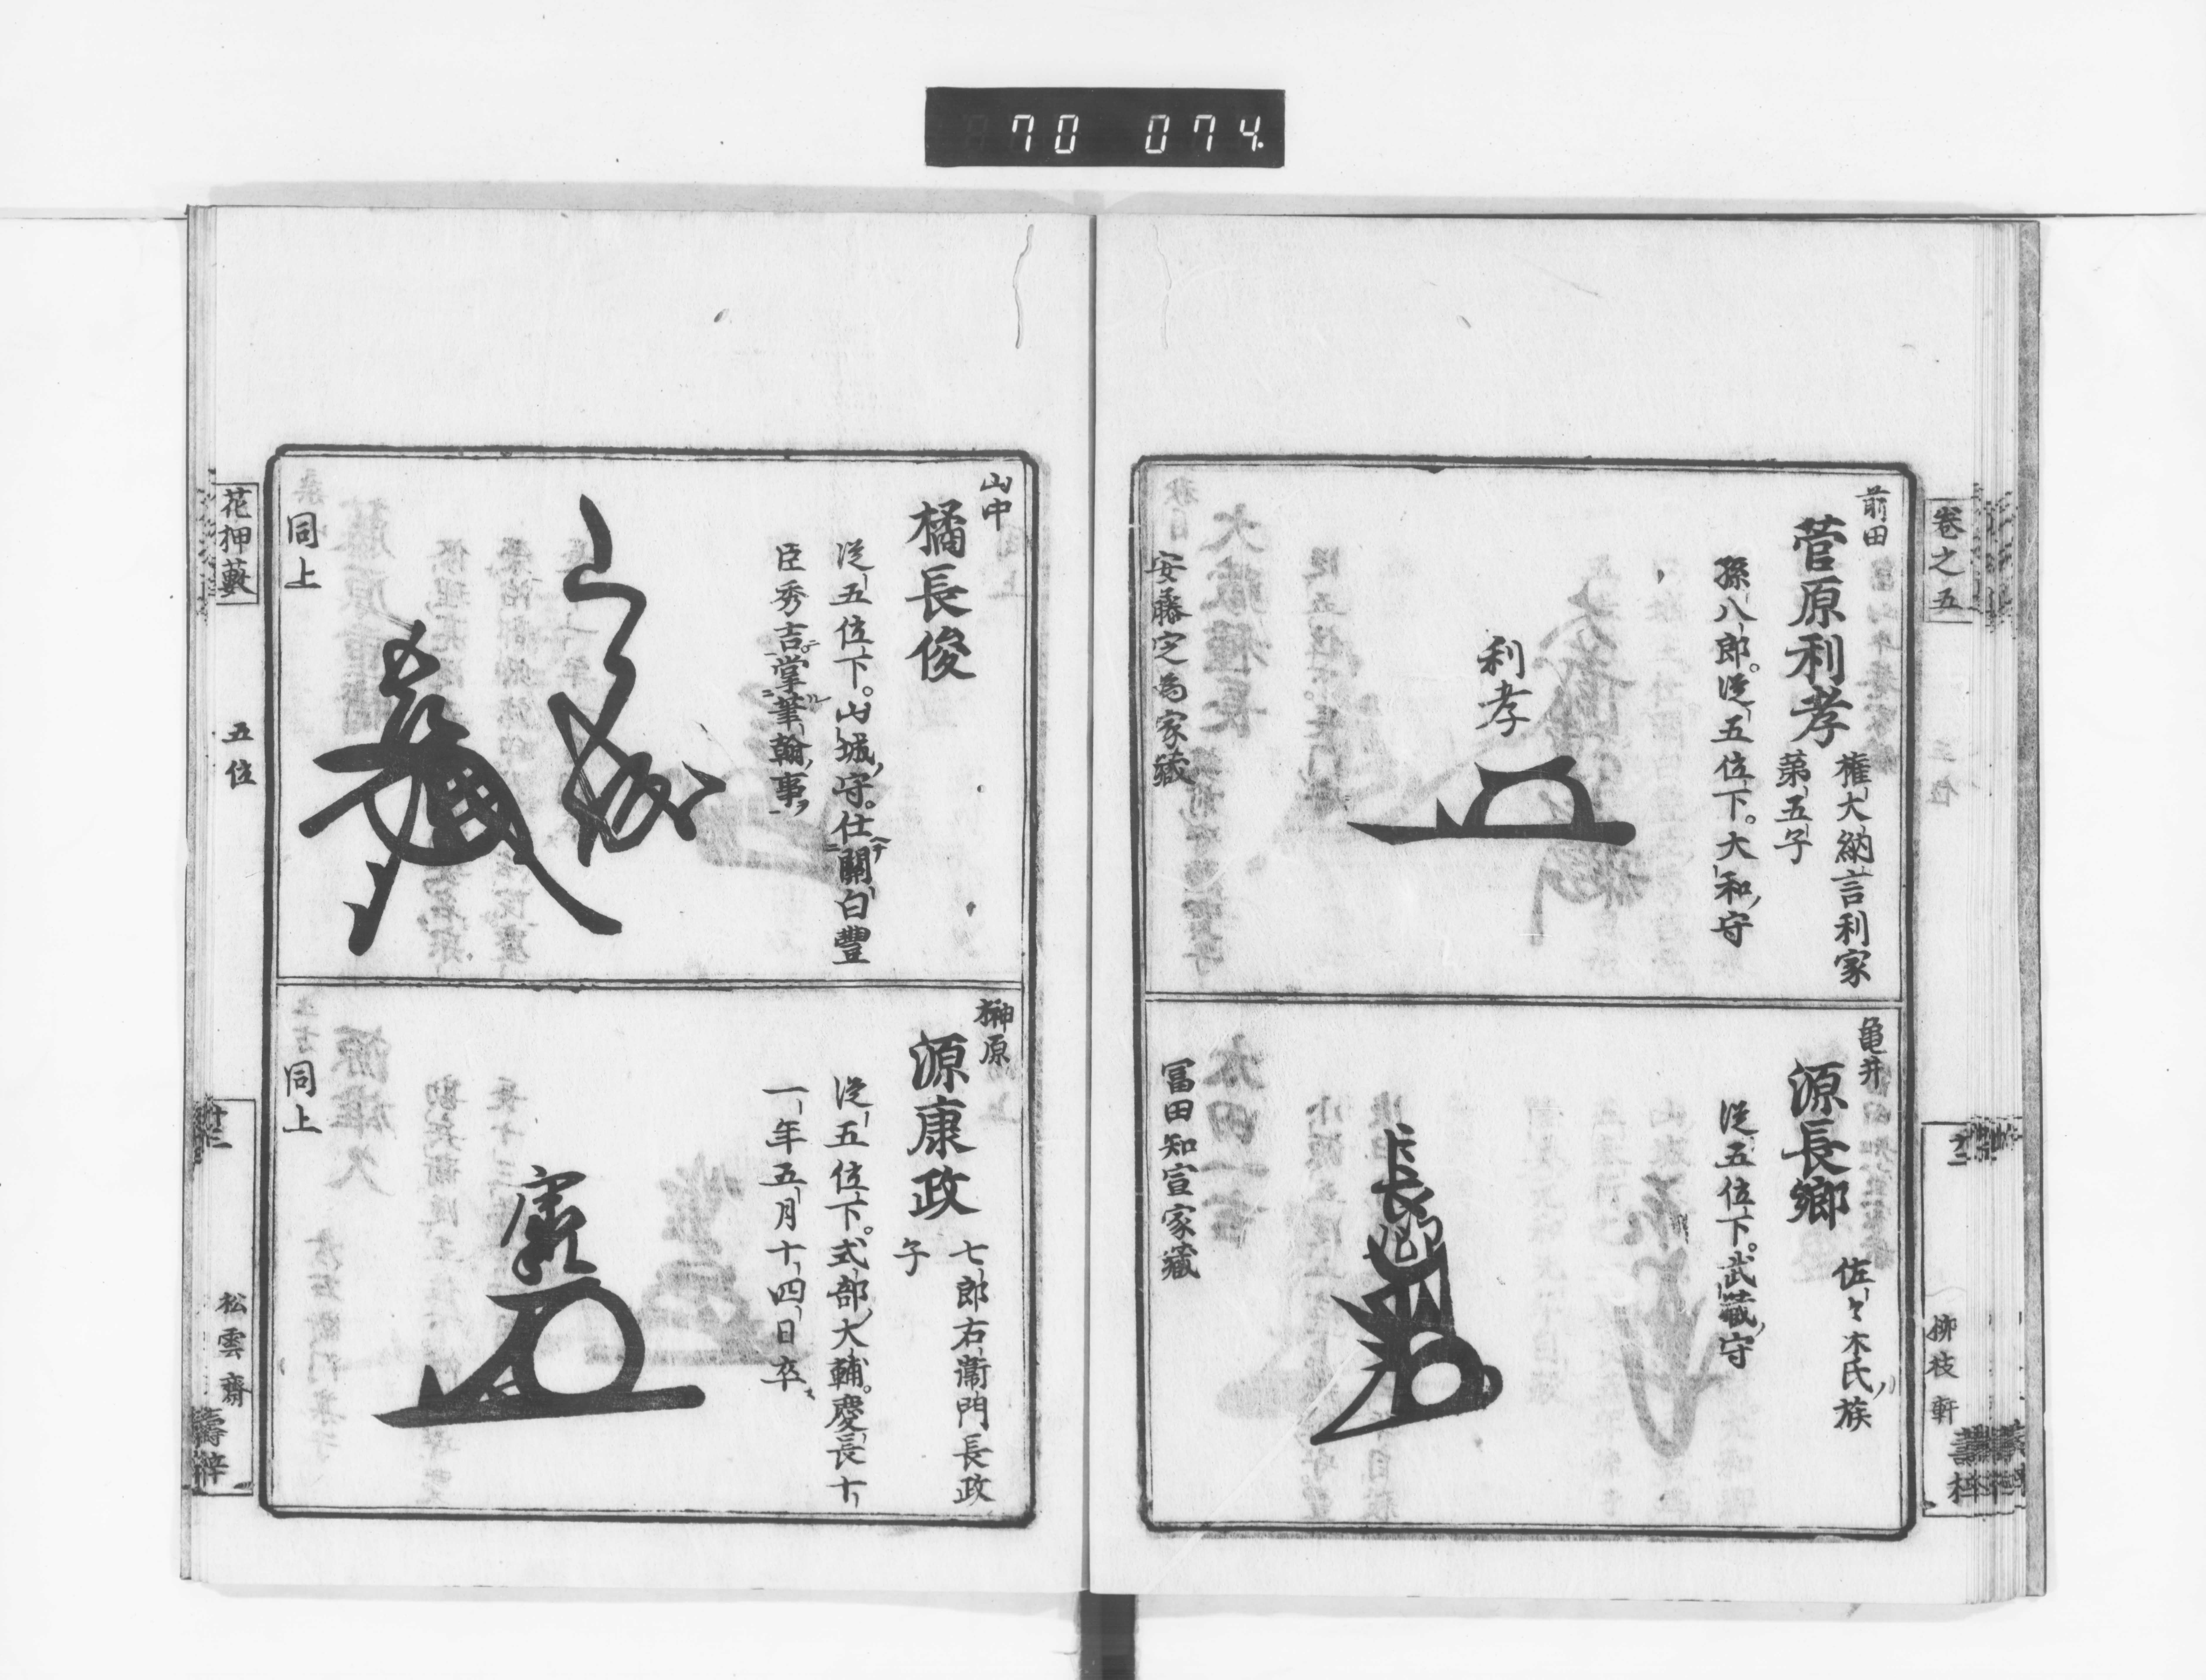 70 074.
卷之五
柳枝軒
前田
菅原利孝
權大納言利家
第五子
孫八郎。從五位下。大和守
利孝
安藤定爲家藏
亀井
源長郷
佐々木氏族
從五位下。武藏守
冨田知宣家藏
山中
橘長俊
從五位下。山城守。仕關白豐
臣秀吉掌筆翰事
同上
榊原
源康政
七郎右衞門長政
子
從五位下。式部大輔。慶長十
一年五月十四日卒
康
同上
花押藪
五位
松雲齋